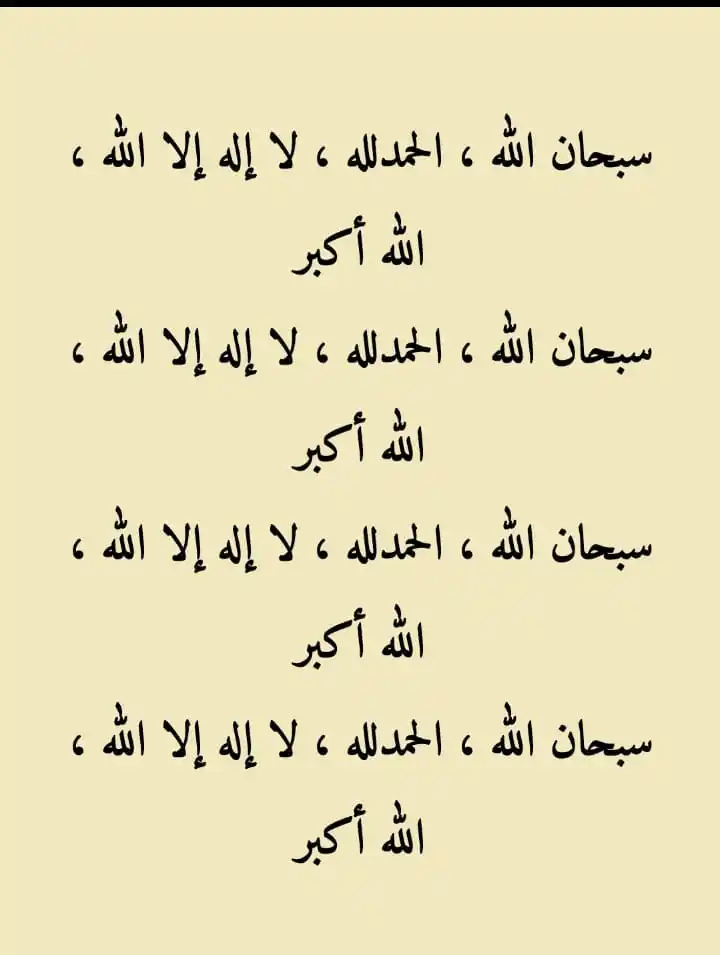 سبحان الله ، الحمدلله ، لا إله إلا الله ،
الله أكبر
سبحان الله ، الحمدلله ، لا إله إلا الله ،
الله أكبر
سبحان الله ، الحمدلله ، لا إله إلا الله ،
الله أكبر
سبحان الله ، الحمدلله ، لا إله إلا الله ،
الله أكبر